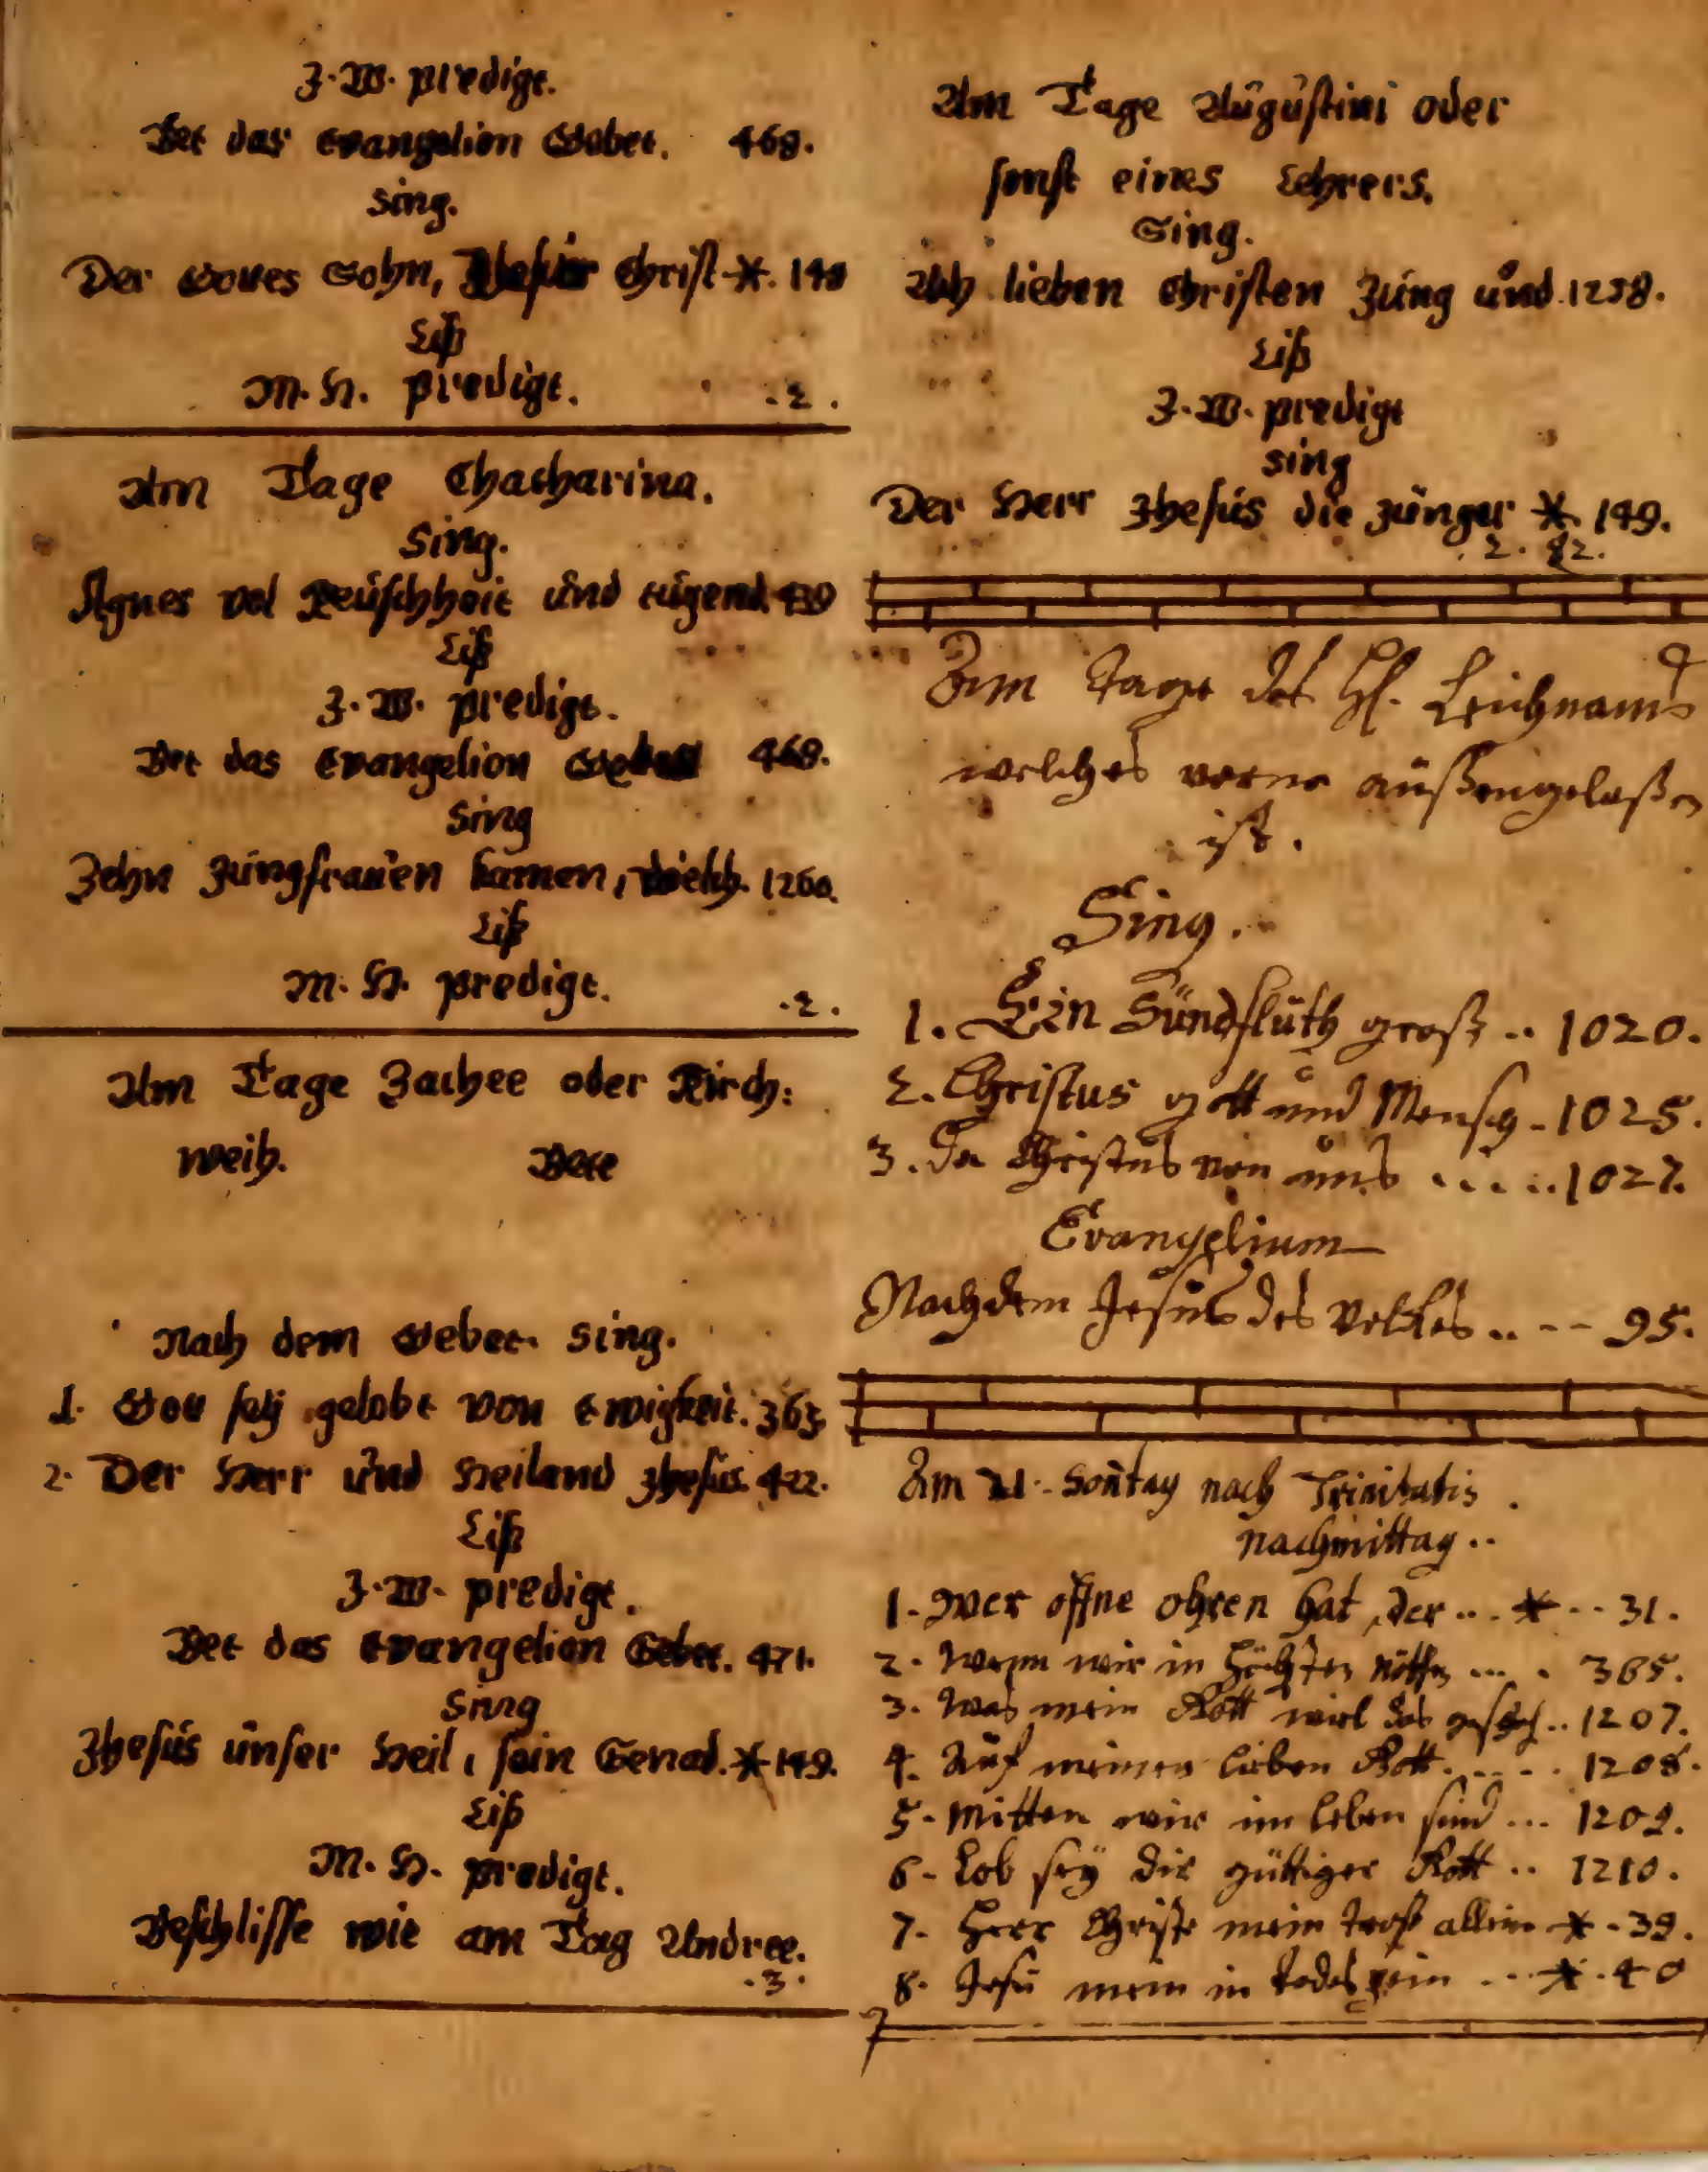 J. W. predigt.
Bet das Evangelion Gebet. 468.
sing.
Der Gottes Sohn, Jhesus Christ *. 149
Liß
M. H. predigt. .2.
Am Tage Chatharina.
Sing.
Agnes vol Keuschheit und tugend. 439
Liß
J. W. predigt.
Bet das Evangelion Gebet 468.
Sing
Zehn Jungfrauen kamen, welch. 1260.
Liß
M. H. predigt. .2.
Am Tage Zachee oder Kirch:
weih. Bete
Nach dem Gebet. sing.
1. Gott sey gelobt von Ewigkeit. 363
2. Der Herr und Heiland Jhesus. 422.
Liß
J. W. predigt.
Bet das Evangelion Gebet. 471.
Sing
Jhesus unser Heil, sein Genad. * 149.
Liß
M. H. predigt.
Beschlisse wie am Tag Andree.
.3.
Am Tage Augustini oder
sonst eines Lehrers.
Sing.
Ach lieben Christen Jung und. 1258.
Liß
J. W. predigt
sing
Der Herr Jhesus die Junger *. 149.
.2. 82.
Am Tage des Hl. Leichnams
welches vorne außengelaßen
ist.
Sing.
1. Ein Sündfluth groß .. 1020.
2. Christus gott und Mensch - 1025.
3. Da Christus von uns ..... 1027.
Evangelium
Nachdem Jesus des Volkes .. -- 95.
Am 21. Sontag nach Trinitatis.
nachmittag ..
1. Wer offne ohren hat, der ... * .. 31.
2. Wenn wir in höchsten nöthen ... . 365.
3. Was mein Gott wil das gescheh .. 1207.
4. Auf meinen lieben Gott. .... 1208.
5. Mitten wir im leben sind ... 1209.
6. Lob sey dir güttiger Gott .. 1210.
7. Herr Christe mein trost allein * - 39.
8. Jesu mein in todes pein ... *. 40